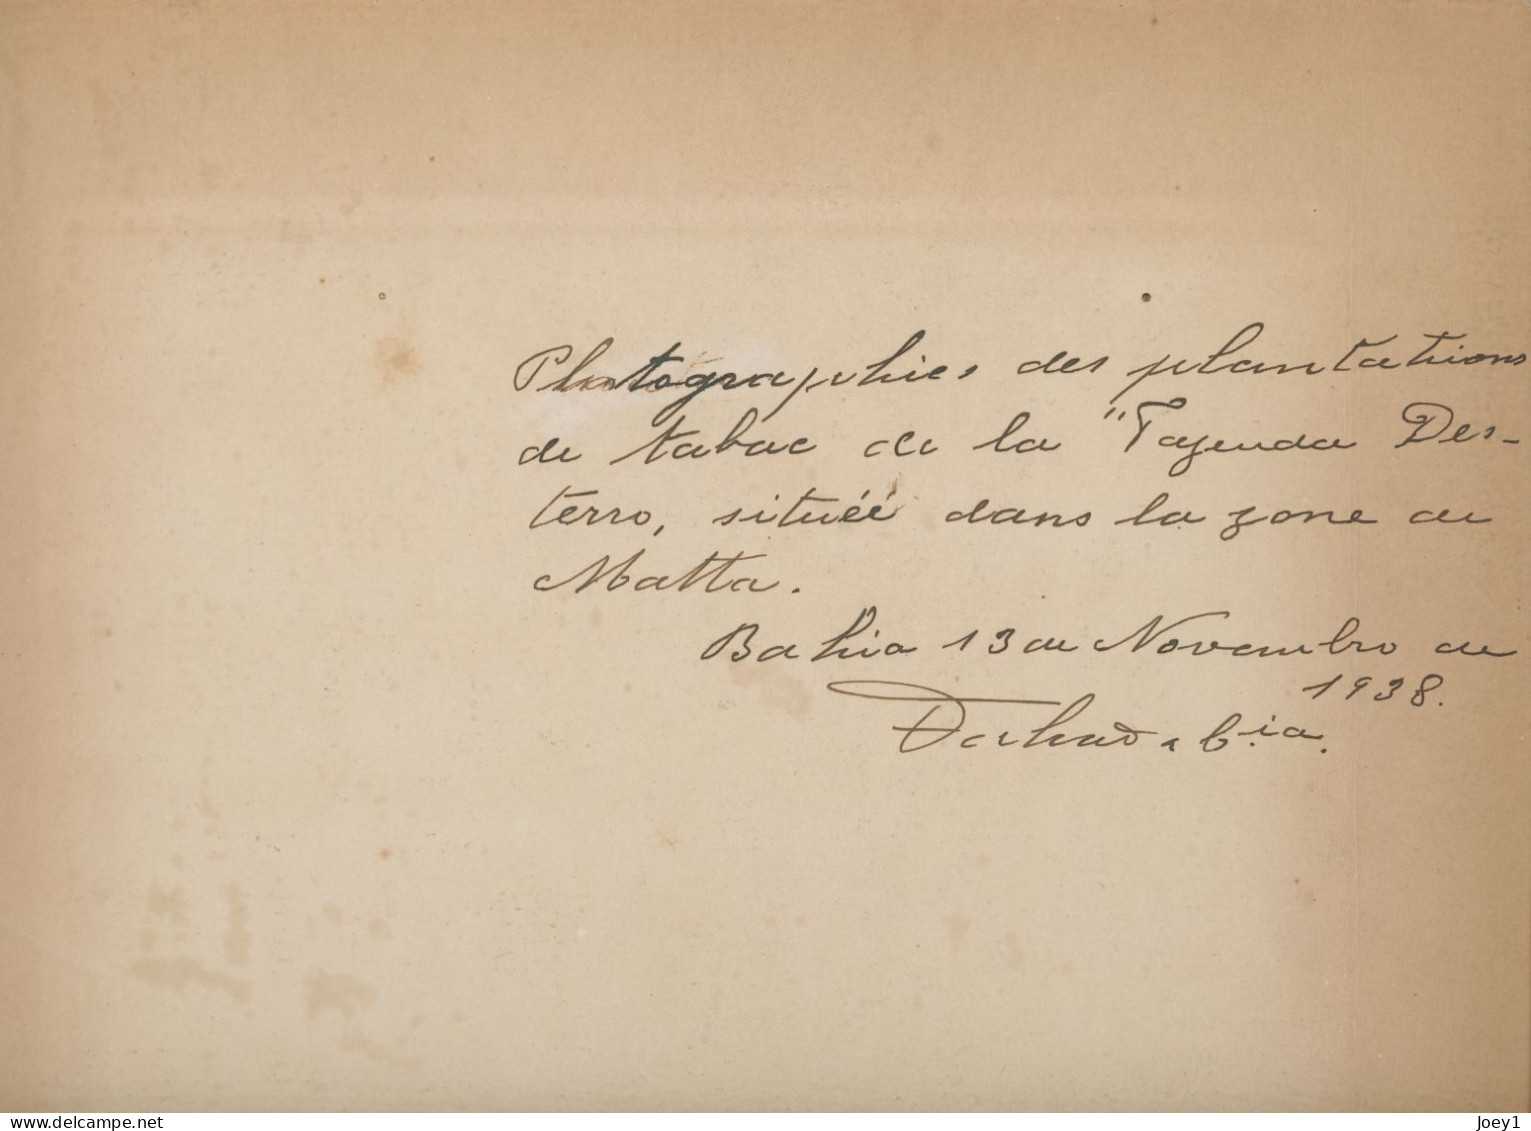 Photographies des plantations
de tabac de la "Fazenda Des-
terro, située dans la zone de
Matta.
Bahia 13 de Novembro de
1938.
& Cia.
www.delcampe.net
Joey1